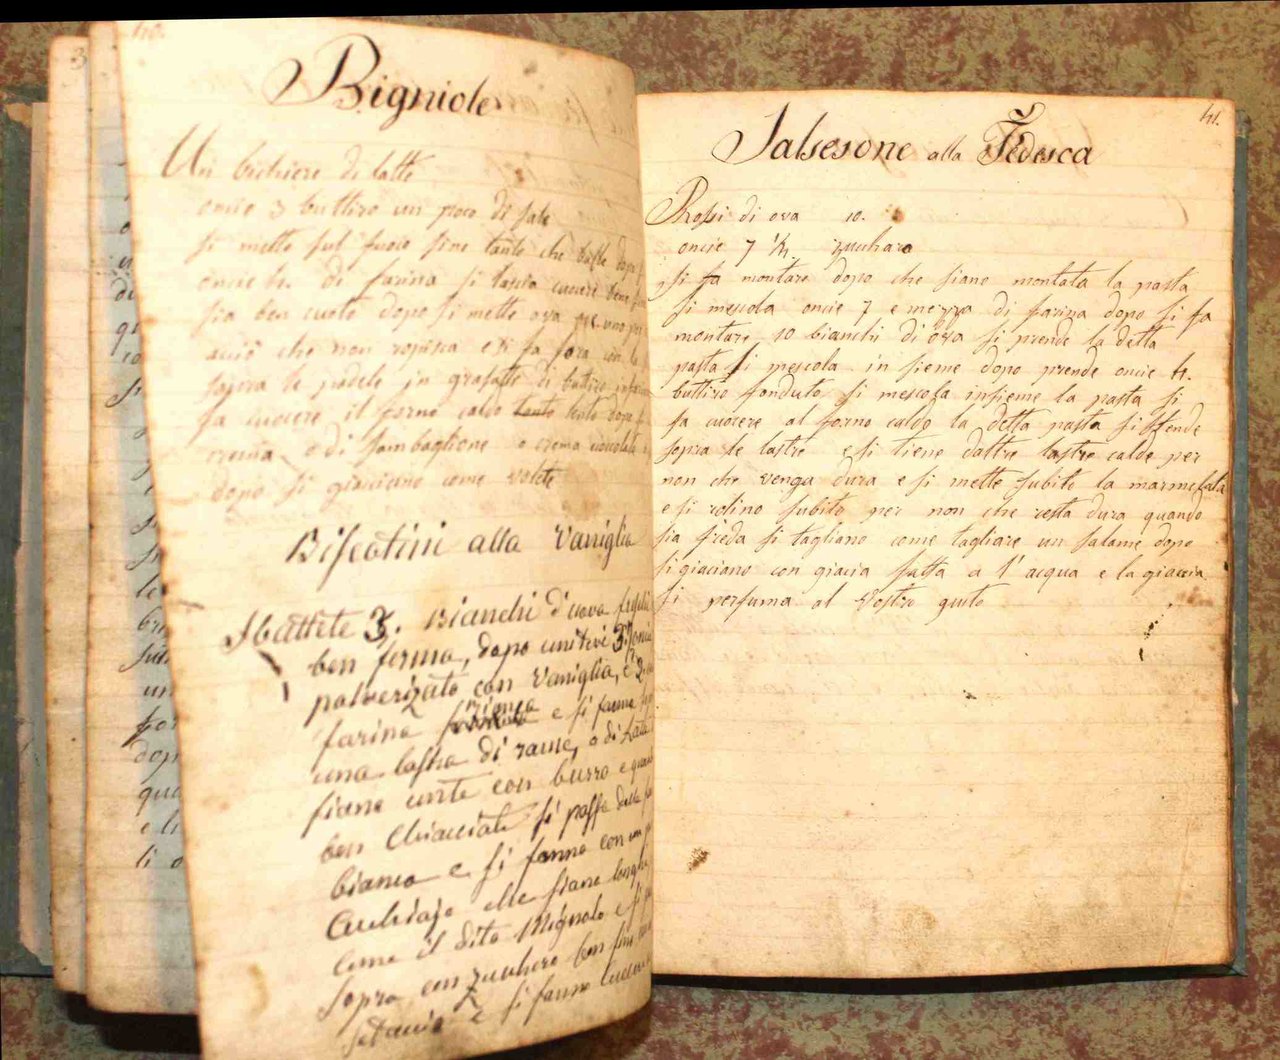 40.
Bigniole
Un bichiere di latte
oncie 3 buttiro un poco di sale
si mette sul fuoco fine tanto che bolle dopo
oncie 4. di farina si lascia cuocere bene
sia ben cuoto dopo si mette ova per uno per
aciò che non ropisca e si fa fora con la
sopra le padele in grasatte di buttiro
fa cuocere il forno caldo tanto tosto dopo
crema o di sambaglione o crema cioccolata
dopo si giaciano come volete
Biscotini alla Vaniglia
Sbattete 3. Bianchi d'uova
ben fermo, dopo unitevi 3. oncie
polverizato con Vaniglia, e 2
farina bianca e si fanno
una lastra di rame, o di Latta
siano unte con burro e quando
ben Chiacciate si passa della
bianca e si fanno con un
Cuchiajo che siano longhi
come il dito Mignolo e si
sopra con zucchero ben fino
setaccio e si fanno cuocere
41.
Salsesone alla Tedesca
Rossi di ova 10.
oncie 7 ½. zucharo
si fa montare dopo che siano montata la pasta
si mescola oncie 7 e mezza di farina dopo si fa
montare 10 bianchi di ova si prende la detta
pasta si mescola in sieme dopo prende oncie 4.
buttiro fonduto si mescola insieme la pasta si
fa cuocere al forno caldo la detta pasta si stende
sopra le lastre e si tiene daltre lastre calde per
non che venga dura e si mette subito la marmelata
e si rolino subito per non che resta dura quando
sia freda si tagliano come tagliare un salame dopo
si giaciano con giacia fatta a l'acqua e la giaccia
si perfuma al Vostro gusto